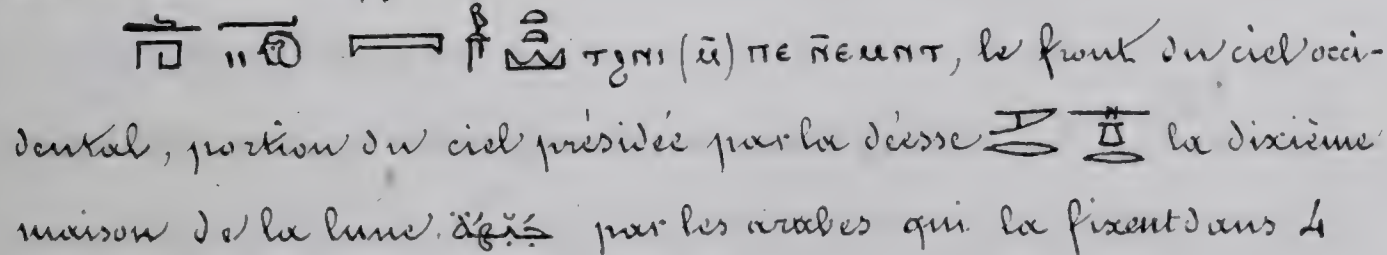 ⲧϩⲛⲓ (ⲙ̄) ⲡⲉ ⲛ̄ⲉⲙⲛⲧ, le front du ciel occi-
dental, portion du ciel présidée par la déesse la dixième
maison de la lune. جبهة par les arabes qui la fixent dans 4